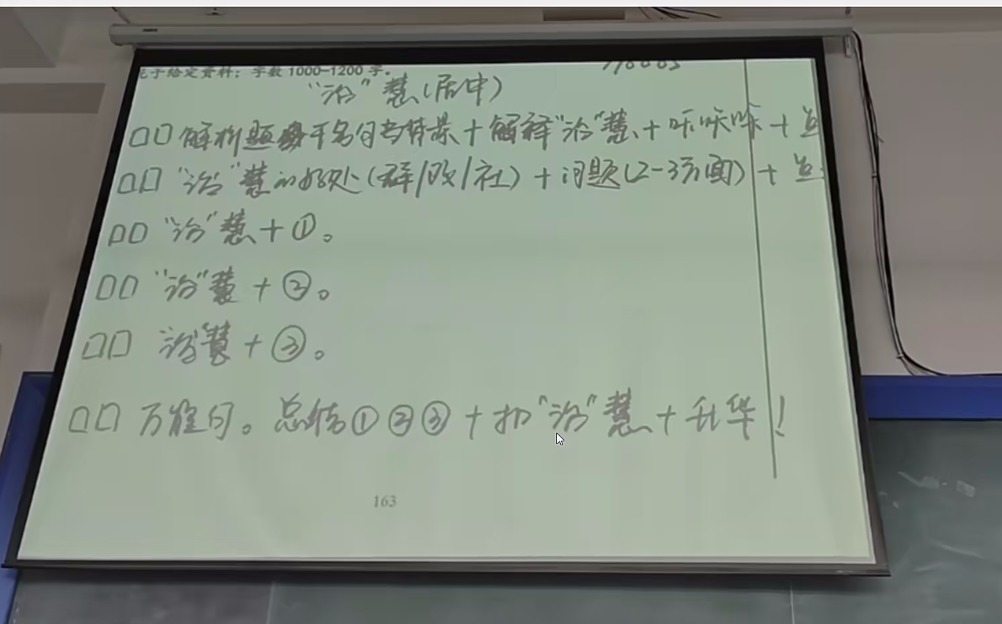 于给定资料；字数 1000–1200 字。
“治”慧(居中)
□□ 解析题 名句与背景+解释“治”慧+咔咔咔+点
□□ “治”慧的好处(群/政/社)+问题(2-3方面)+点
□□ “治”慧+①。
□□ “治”慧+②。
□□ “治”慧+③。
□□ 万能句。总结①②③+扣“治”慧+升华!
163